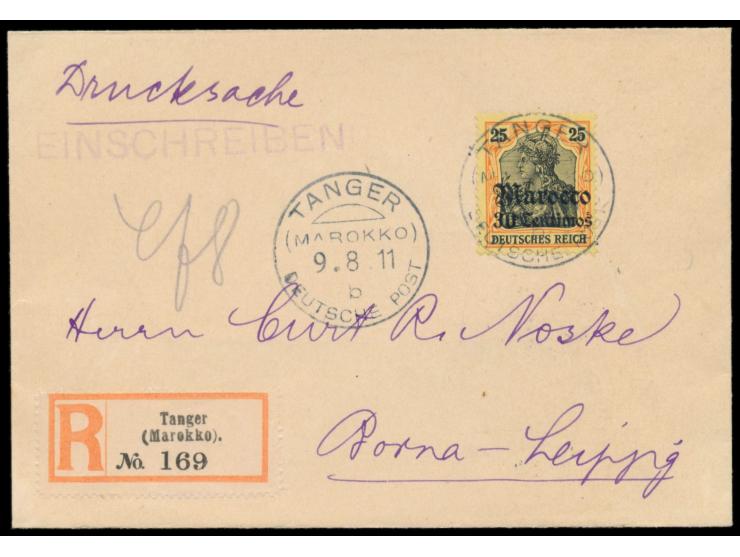 Drucksache
EINSCHREIBEN
25 25
Marocco
30 Centimos
DEUTSCHES REICH
TANGER
(MAROKKO)
9.8.11
b
DEUTSCHE POST
Herrn Curt R. Noske
R
Tanger
(Marokko).
No. 169
Borna – Leipzig